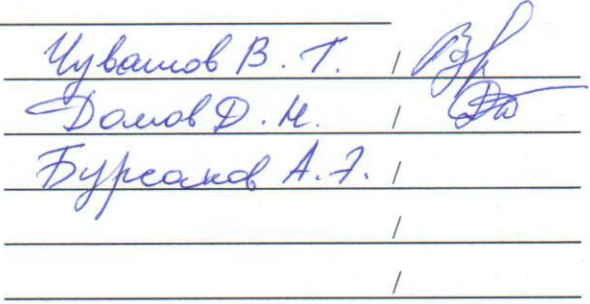 Чувашов В. Т. /
Домов Д. Н. /
Бурсаков А. Э. /
/
/